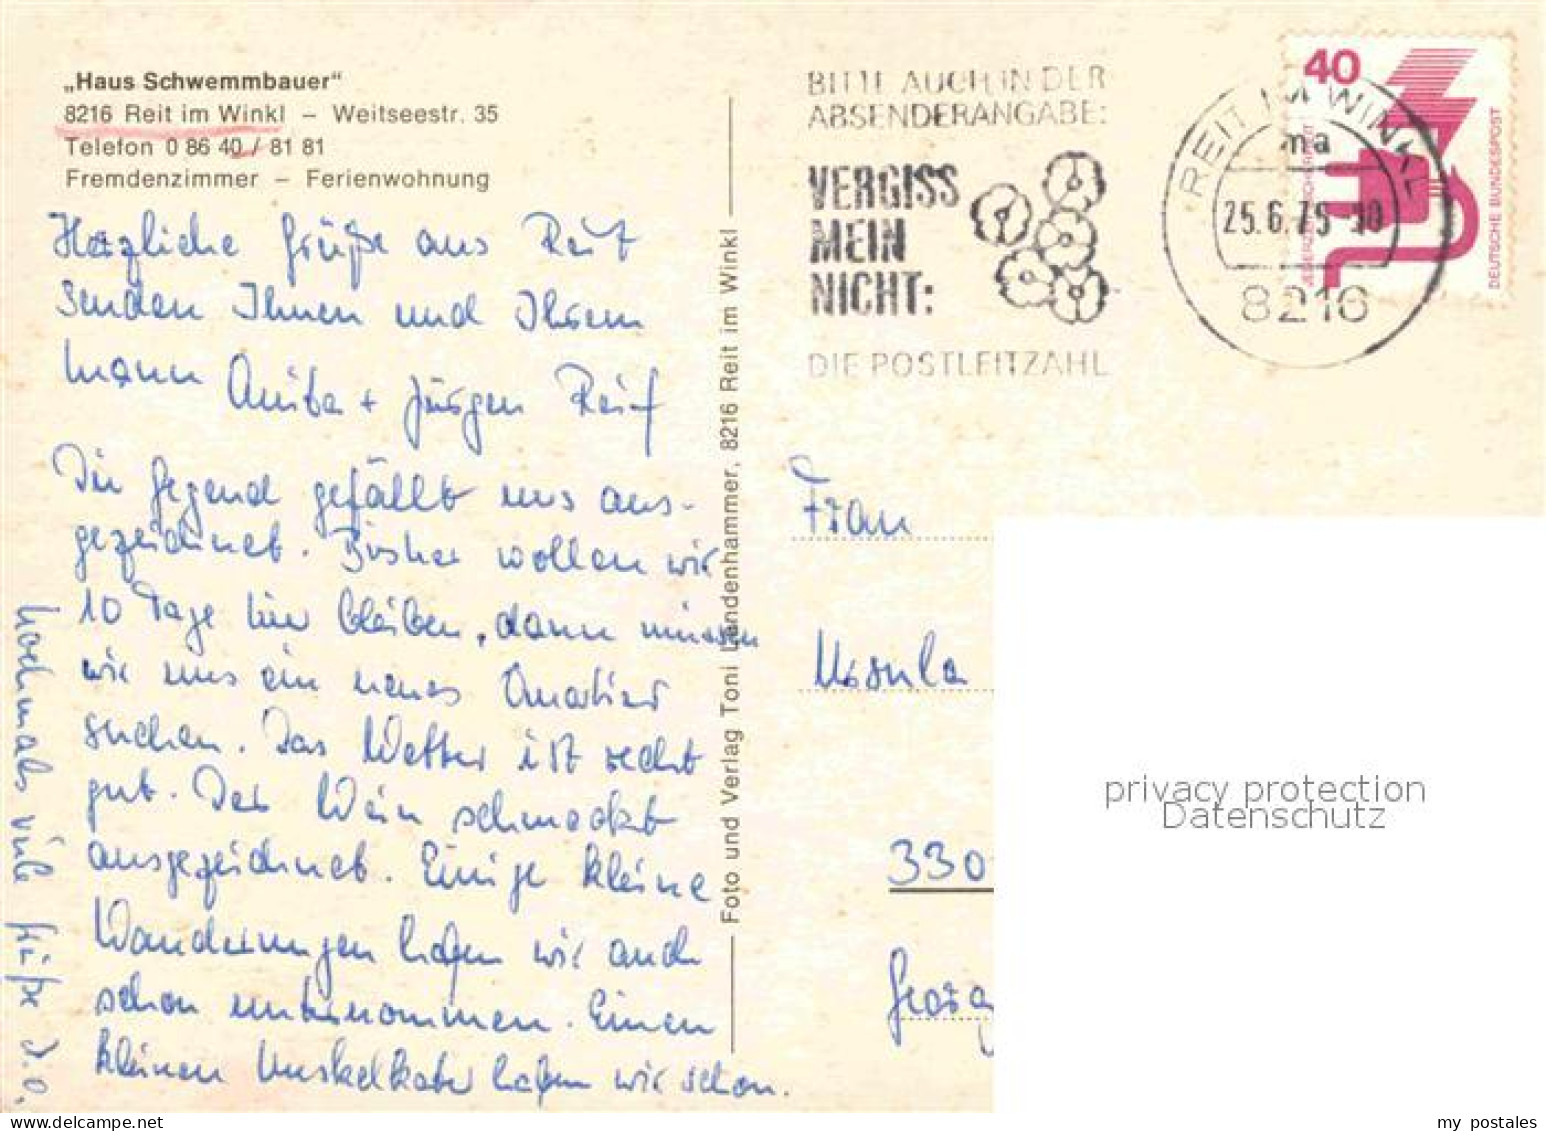 „Haus Schwemmbauer“
8216 Reit im Winkl – Weitseestr. 35
Telefon 0 86 40 / 81 81
Fremdenzimmer – Ferienwohnung
Herzliche Grüße aus Reit
senden Ihnen und Ihrem
Mann Anita + Jürgen Reif
Die Gegend gefällt uns aus-
gezeichnet. Bisher wollen wir
10 Tage hier bleiben, dann müssen
wir uns ein neues Quartier
suchen. Das Wetter ist recht
gut. Der Wein schmeckt
ausgezeichnet. Einige kleine
Wanderungen haben wir auch
schon unternommen. Einen
kleinen Muskelkater haben wir schon.
nochmals viele Grüße d.o.
Foto und Verlag Toni Landenhammer, 8216 Reit im Winkl
BITTE AUCH IN DER
ABSENDERANGABE:
VERGISS
MEIN
NICHT:
DIE POSTLEITZAHL
REIT IM WINKL
ma
25.6.75-10
8216
40
JEDERZEIT SICHERHEIT
DEUTSCHE BUNDESPOST
Frau
Ursula
330
Georg
privacy protection
Datenschutz
my postales